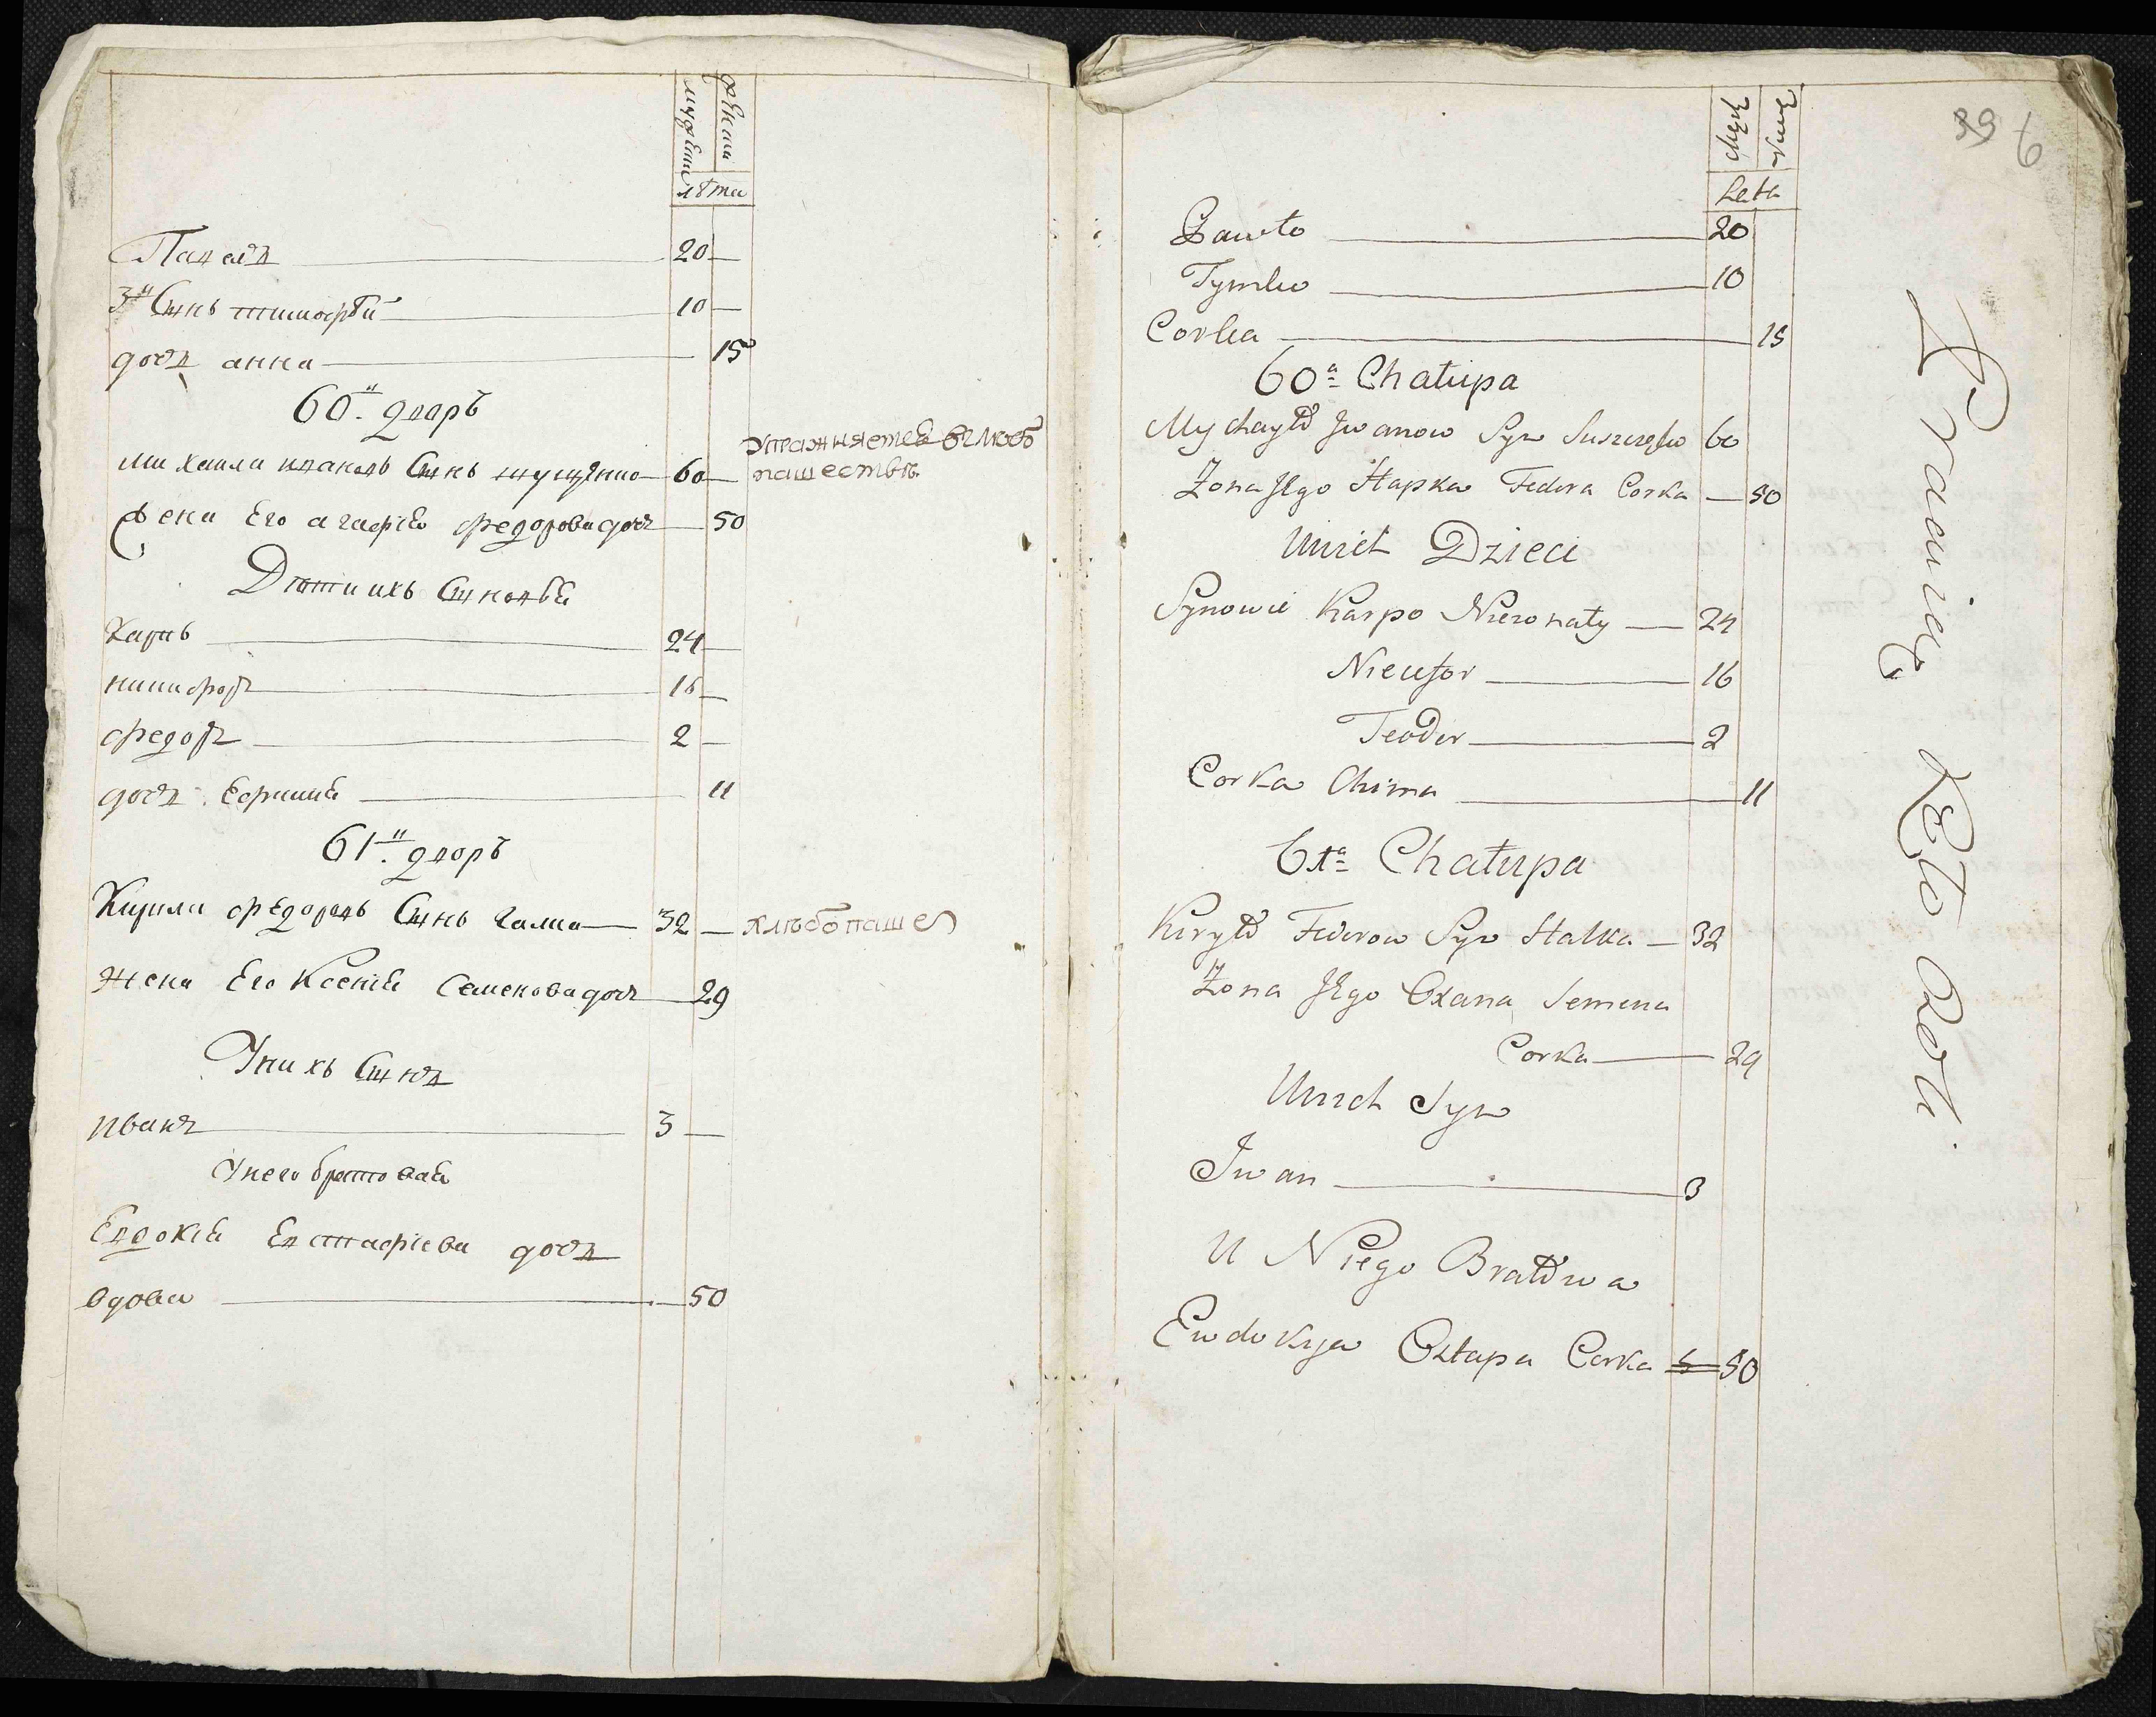 мужеска женска
лѣта
Павелъ 20 —
3й Сынъ тимофѣй 10 —
дочъ анна 15
60й дворъ
михаила ивановъ Сынъ — 60 — Упражняетса вхлѣбо
пашествѣ
жена Его агафія федорова дочь 50
Дѣти ихъ Сыновья
Карпъ 24 —
никифоръ 16 —
федоръ 2 —
дочъ Ефимия 11
61й дворъ
Кирила федоровъ Сынъ галка — 32 — хлѣбопашец
жена Его Ксенія Семенова дочь 29
У них Сынъ
иванъ 3 —
У него братовая
Евдокія Евстафіева дочъ
вдова 50
39 6
Męzki Zenski
Lata
Pawło 20
Tymko 10
Corka 15
60a Chałupa
Mychayło Jwanow Syn 60
Zona Jego Hapka Fedora Corka — 50
Unich Dzieci
Synowie Karpo Niezonaty — 24
Nicefor 16
Teodor 2
Corka Chima 11
61a Chałupa
Kiryło Fedorow Syn Halka — 32
Zona Jego Oxana Semena
Corka 29
Unich Syn
Jwan 3
U Niego Bratowa
Ewdokya Ostapa Corka 50
Pracuią Koło Roli.